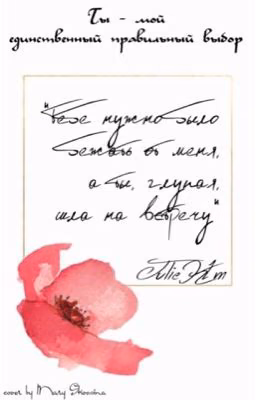 Ты - мой
единственный правильный выбор
"Тебе нужно было
бежать от меня,
а ты, глупая,
шла на встречу"
cover by Mary